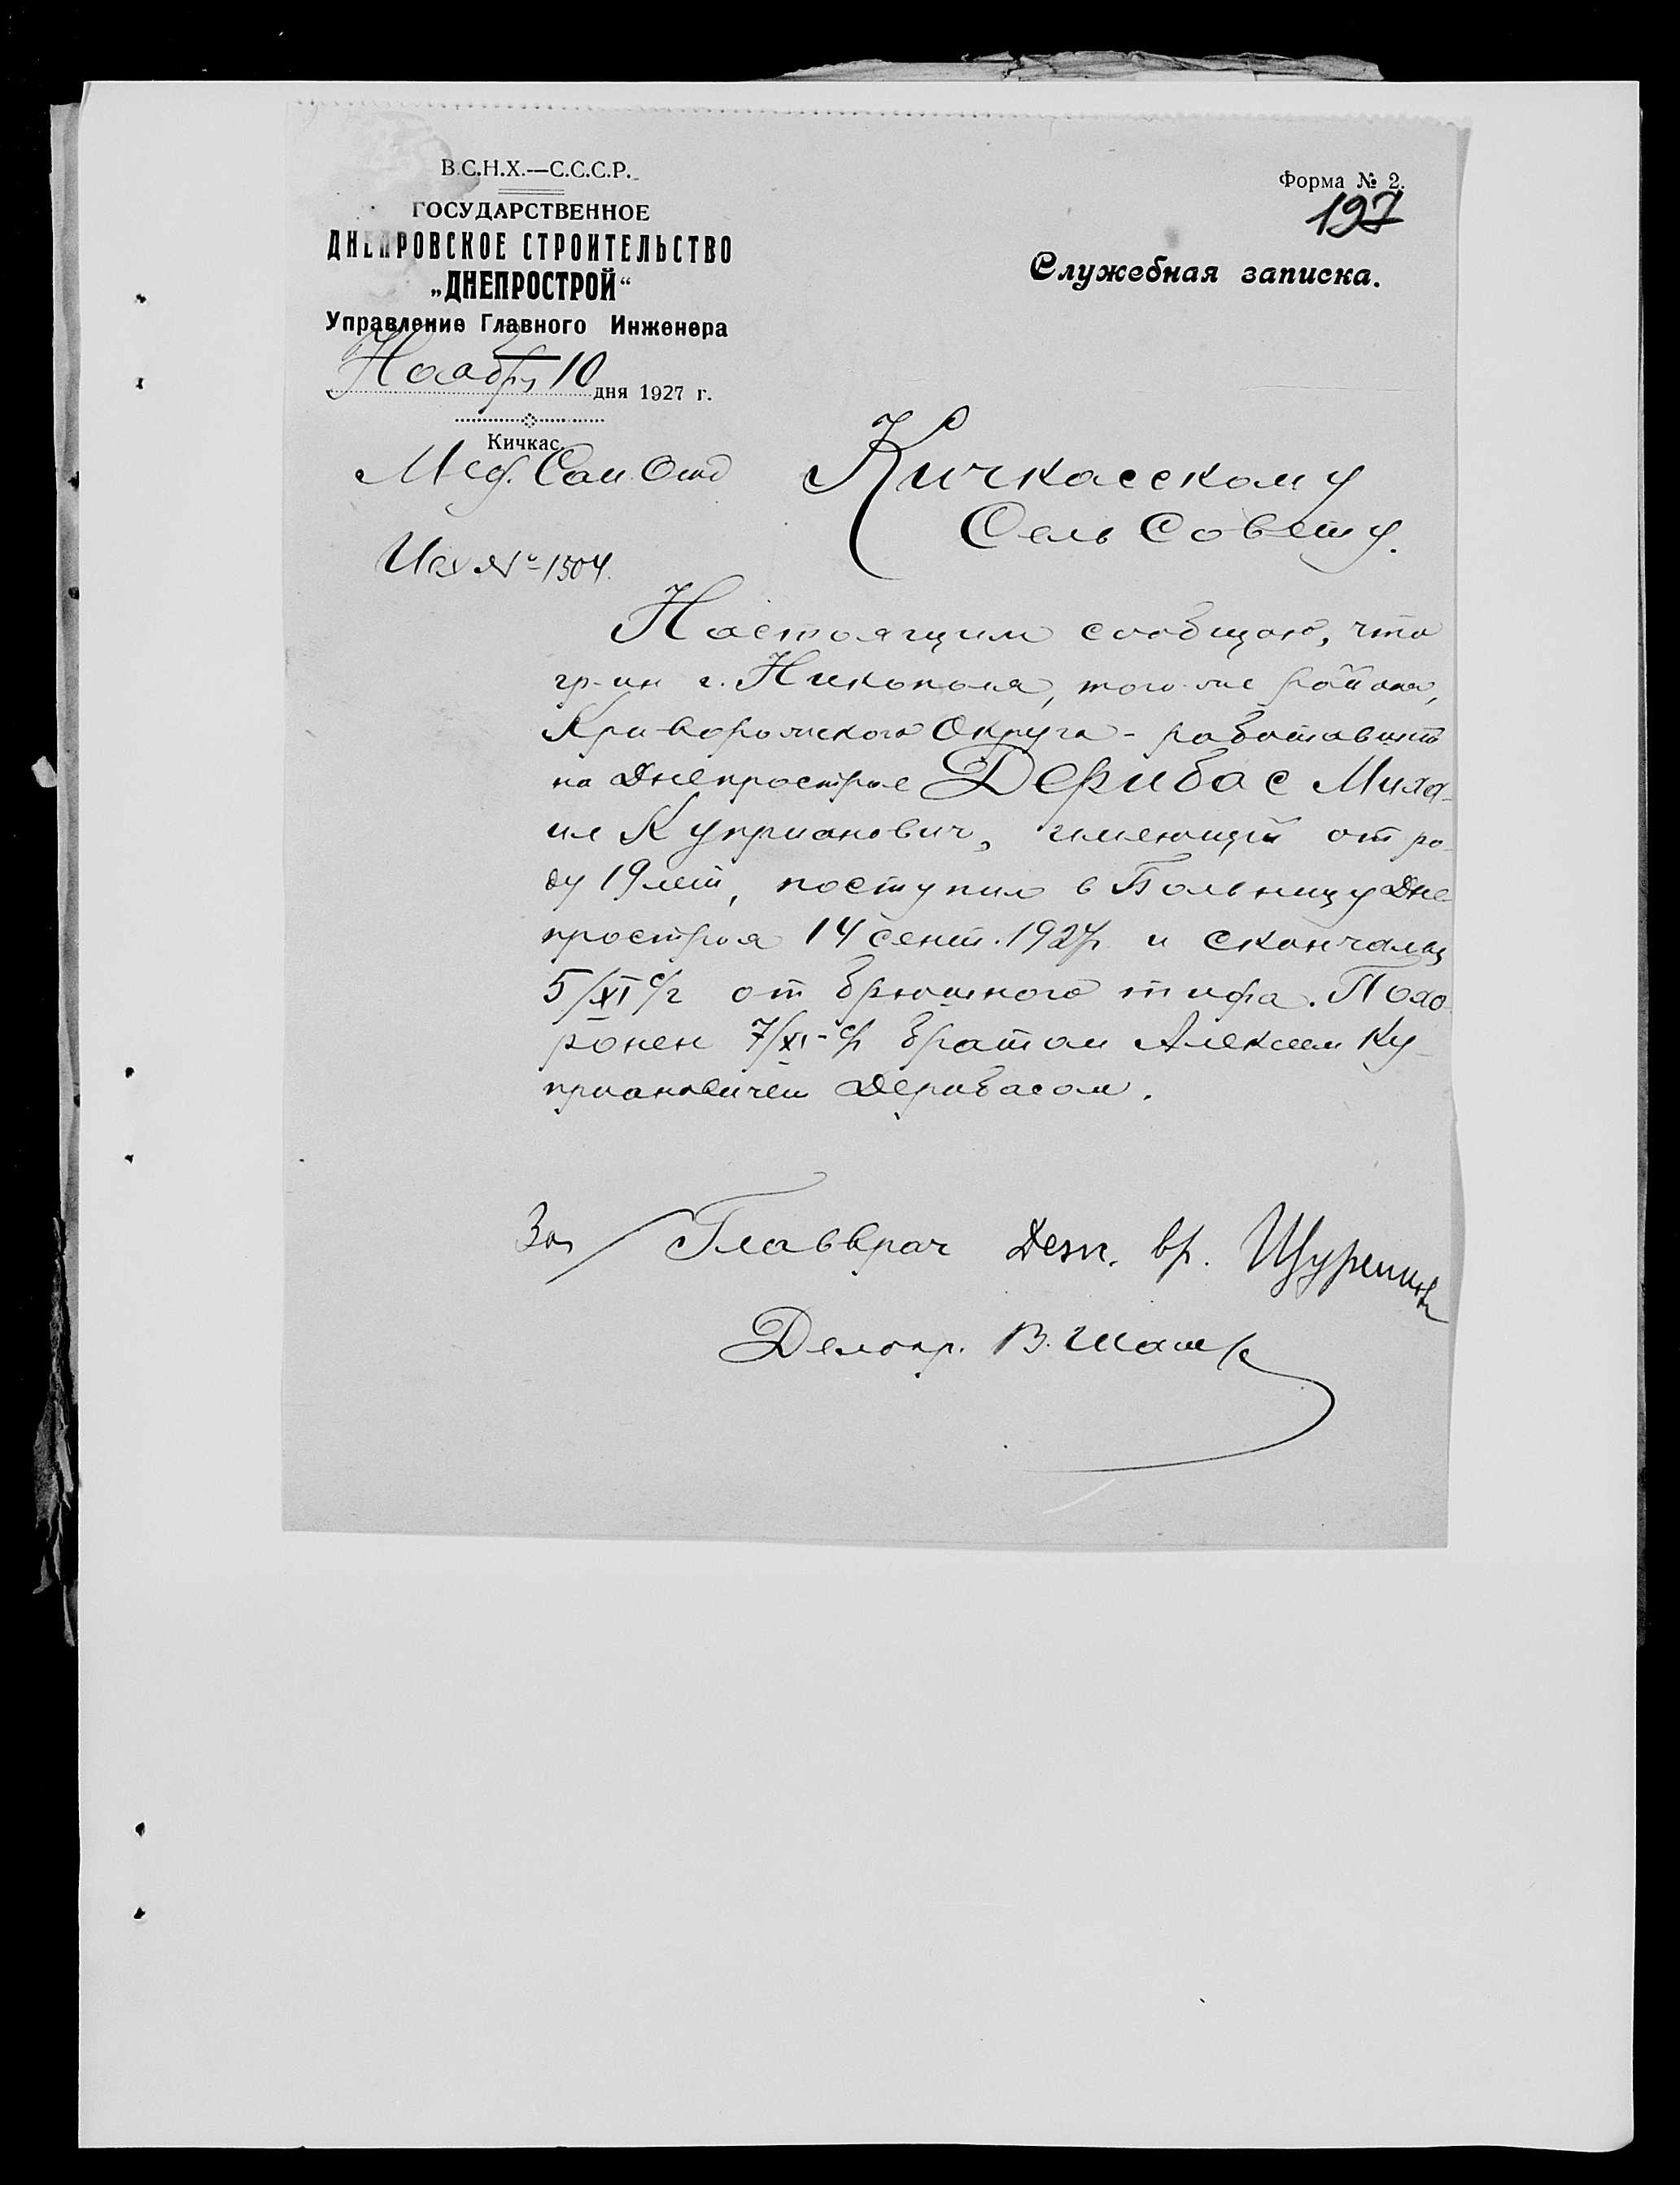 В.С.Н.Х.—С.С.С.Р.
ГОСУДАРСТВЕННОЕ
ДНЕПРОВСКОЕ СТРОИТЕЛЬСТВО
„ДНЕПРОСТРОЙ“
Управление Главного Инженера
Ноября 10 дня 1927 г.
Кичкас.
Мед. Сан. Отд
Исх № 1504.
Форма № 2.
197
Служебная записка.
Кичкасскому
Сель Совету.
Настоящим сообщаю, что
гр-ин г. Никополя, того-же района,
Криворожского Округа - работавший
на Днепрострое Дерибас Миха-
ил Куприанович, имеющий от ро-
ду 19 лет, поступил в Больницу Дне-
простроя 14 сент. 1927г. и скончался
5/XI с/г от брюшного тифа. Похо-
ронен 7/XI-с/г братом Алексеем Ку-
приановичем Дерибасом.
За / Главврач Деж. вр.
Делопр. В.